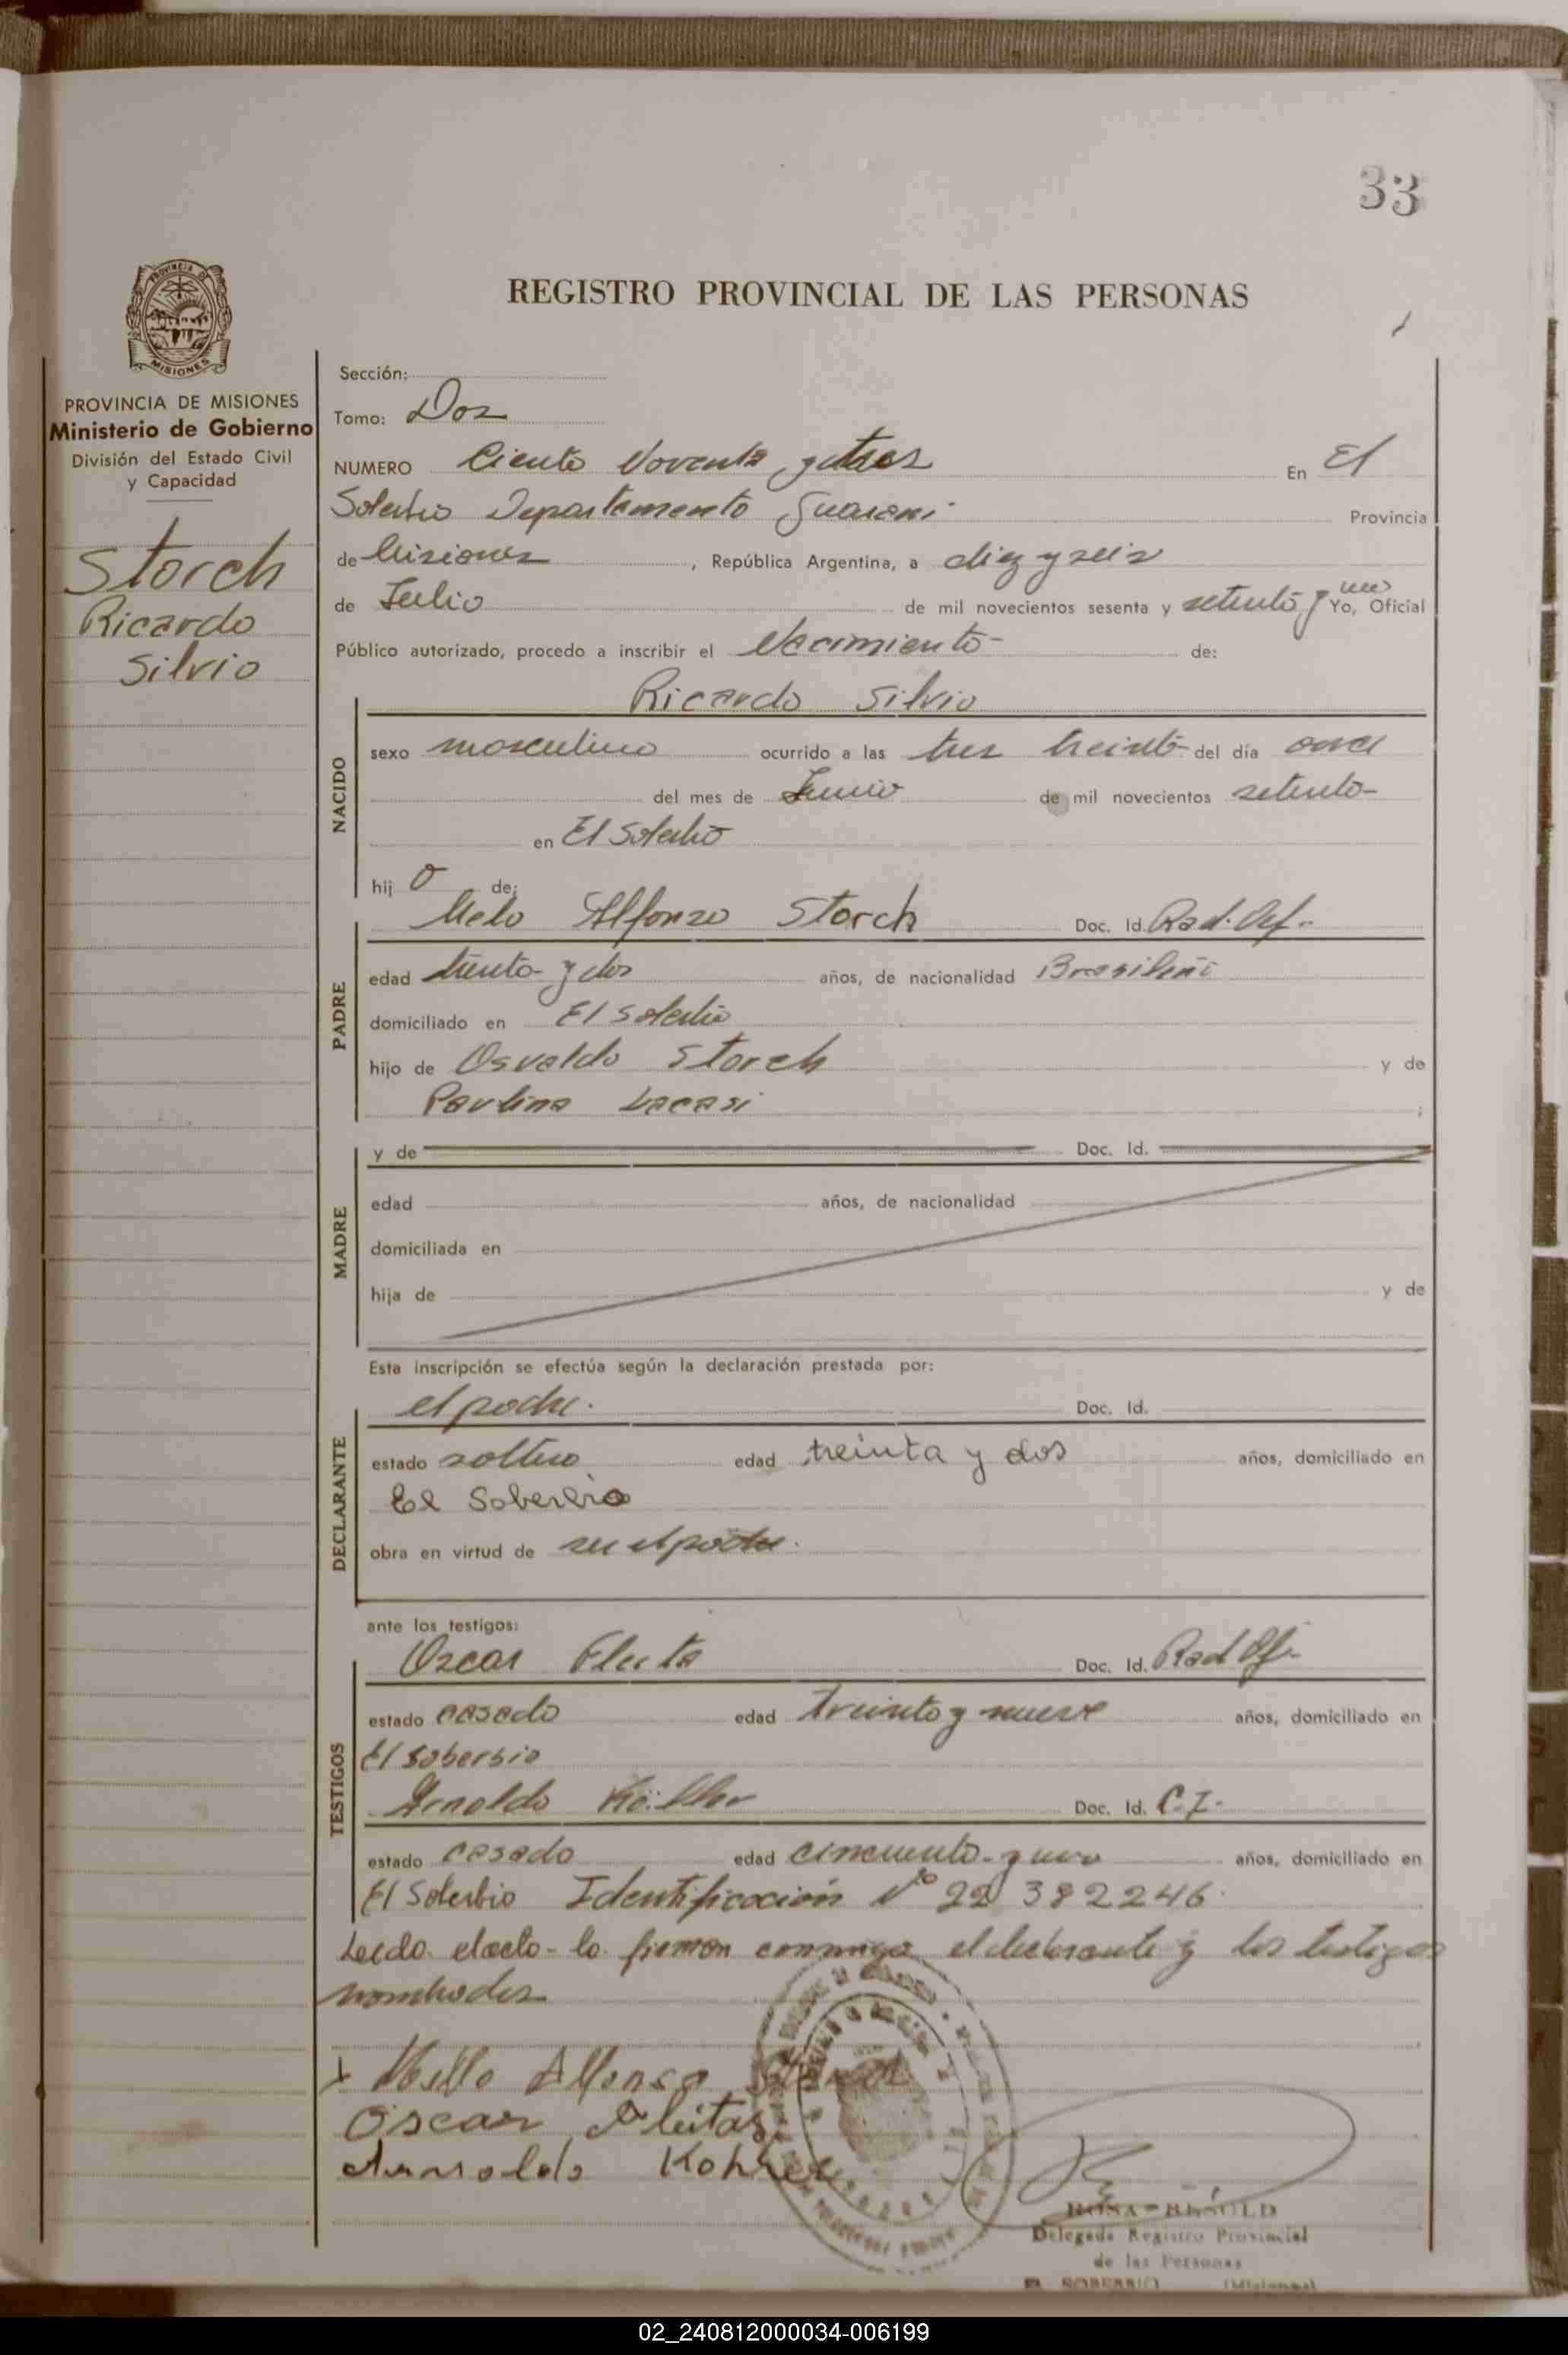 33
REGISTRO PROVINCIAL DE LAS PERSONAS
PROVINCIA DE
MISIONES
PROVINCIA DE MISIONES
Ministerio de Gobierno
División del Estado Civil
y Capacidad
Storch
Ricardo
Silvio
Sección:
Tomo: Dos
NUMERO Ciento Noventa y tres En El
Soberbio Departamento Guarani Provincia
de Misiones, República Argentina, a diez y seis
de Julio de mil novecientos sesenta y setenta y uno Yo, Oficial
Público autorizado, procedo a inscribir el Nacimiento de:
Ricardo Silvio
NACIDO
sexo masculino ocurrido a las tres treinta del día once
del mes de Junio de mil novecientos setenta
en El Soberbio
hijo de:
PADRE
Melo Alfonzo Storch Doc. Id. Rad. Of.
edad treinta y dos años, de nacionalidad Brasileño
domiciliado en El Soberbio
hijo de Osvaldo Storch y de
Paulina Lacasi ;
MADRE
y de Doc. Id.
edad años, de nacionalidad
domiciliada en
hija de y de
Esta inscripción se efectúa según la declaración prestada por:
DECLARANTE
el padre. Doc. Id.
estado soltero edad treinta y dos años, domiciliado en
El Soberbio
obra en virtud de ser el padre.
ante los testigos:
TESTIGOS
Oscar Doc. Id. Rad Of.
estado casado edad treinta y nueve años, domiciliado en
El Soberbio
Arnoldo Doc. Id. C.I.
estado casado edad cincuenta y uno años, domiciliado en
El Soberbio Identificación Nº 22 382246.
Leido el acto lo firman conmigo el declarante y los testigos
nombrados
x Mello Alfonso
Oscar Fleitas
Arnoldo Kohler
ROSA BESOLD
Delegada Registro Provincial
de las Personas
EL SOBERBIO (Misiones)
02_240812000034-006199